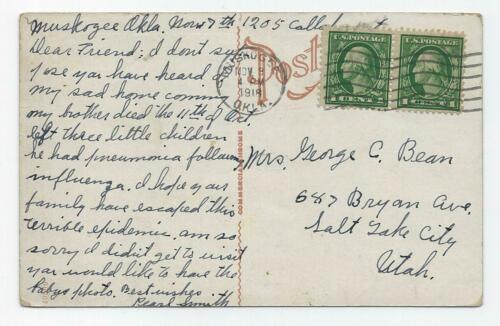 Muskogee Okla. Nov 7th 1205 Callahan st
Dear Friend: I don't sup
pose you have heard of
my sad home coming
my brother died the 11th of Oct
left three little children
he had pneumonia following
influenza. I hope your
family have escaped this
terrible epidemic. am so
sorry I didn't get to visit
you would like to have the
babys photo. Best wishes.
Pearl Smith
Post
MUSKOGEE
NOV 8
1918
OKLA.
U.S. POSTAGE
U.S. POSTAGE
COMMERCIALCHROME
Mrs. George C. Bean
687 Bryan Ave.
Salt Lake City
Utah.